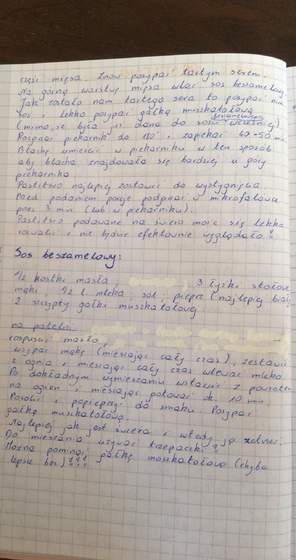 część mięsa. Znów posypać tartym serem.
Na górną warstwę mięsa wlać sos beszamelowy.
Jak zostało nam tartego sera to posypać nim
sos i lekko posypać gałką muszkatołową
(mimo, że była już dana do sosu beszamelowego (wcześniej)
Rozgrzać piekarnik do 180° i zapiekać 40-50 min
Blachę umieścić w piekarniku w ten sposób
aby blacha znajdowała się bardziej u góry
piekarnika.
Pastitso najlepiej zostawić do wystygnięcia
Przed podaniem porcję podgrzać w mikrofalówce
przez 3 min (lub w piekarniku).
Pastitso podawane na świeżo może się lekko
rozwalić i nie będzie efektownie wyglądało!
Sos beszamelowy:
1/2 kostki masła 3 łyżki stołowe
mąki, 1/2 l mleka sól, pieprz (najlepiej biały)
2 szczypty gałki muszkatołowej
na patelni
rozpuścić masło,
wsypać mąkę (mieszając cały czas), zestawić
z ognia i mieszając cały czas wlewać mleko
Po dokładnym wymieszaniu wstawić z powrotem
na ogień i mieszając gotować ok 10 min
Posolić i popieprzyć do smaku. Posypać
gałką muszkatołową.
Najlepiej jak jest świeża i wtedy ją zetrzeć.
Do mieszania używać trzepaczki!
Można pominąć gałkę muszkatołową (chyba
lepsze bez)!!!